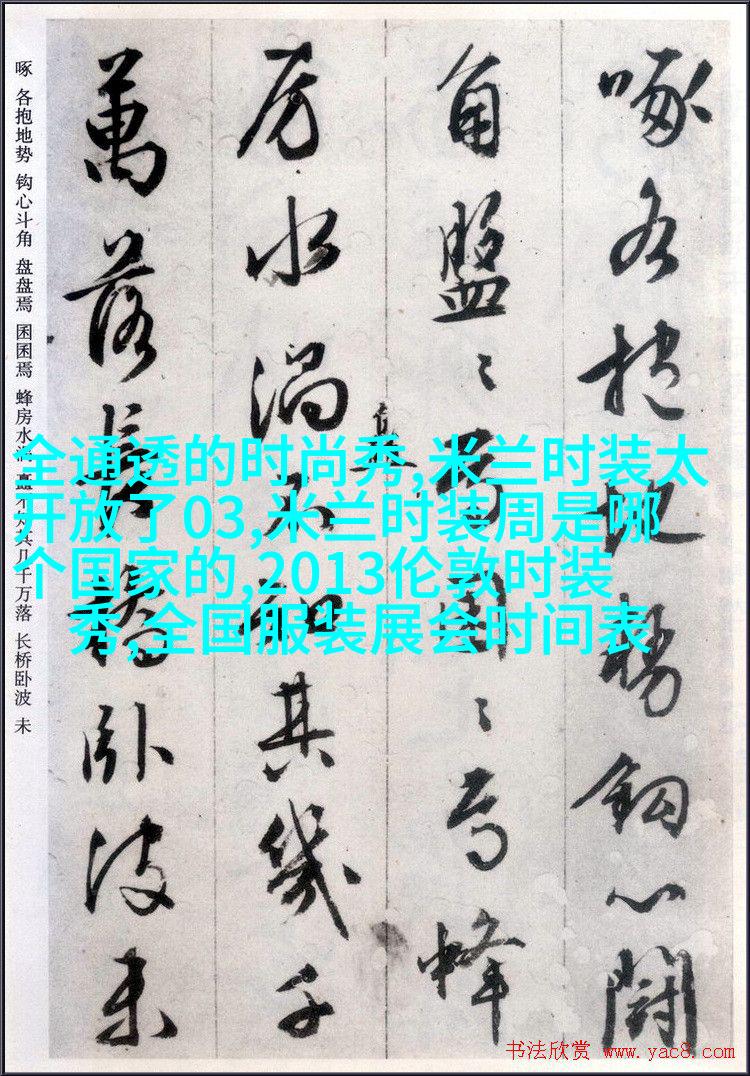 啄各抱地勢鉤心鬪
角盤〻焉囷〻焉蜂
房水渦矗不知其幾千
萬落長橋卧波未
啄 各抱地势 钩心斗角 盘盘焉 囷囷焉 蜂房水涡 矗不知其几千万落 长桥卧波 未
全通透的时尚秀,米兰时装太
开放了03,米兰时装周是哪
个国家的,2013伦敦时装
秀,全国服装展会时间表
书法欣赏 www.yac8.com